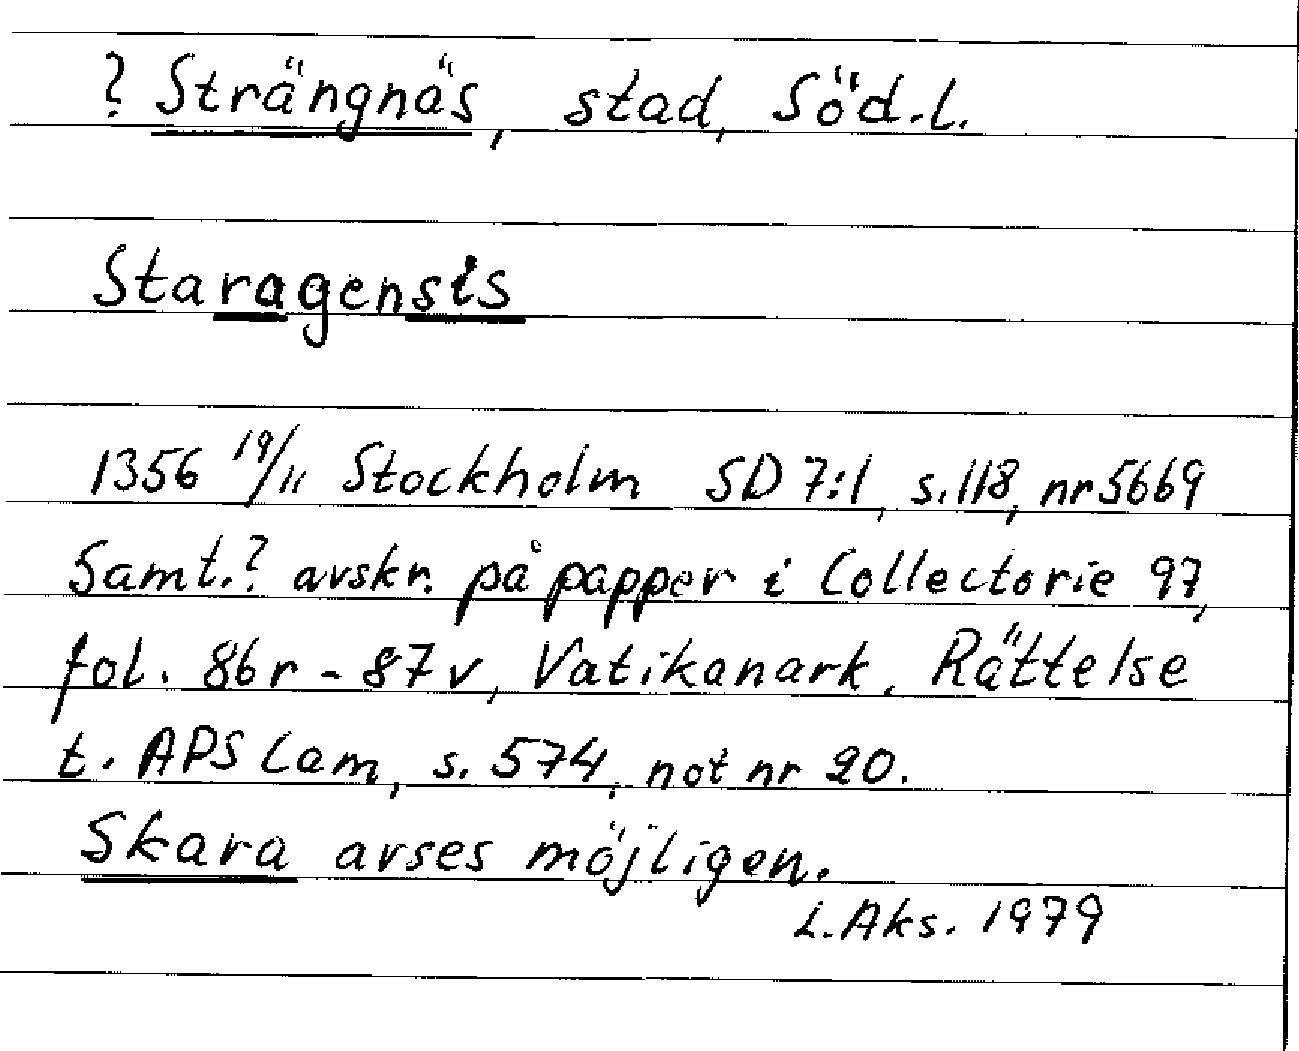 ? Strängnäs, stad, Söd.l.
Staragensis
1356 19/11 Stockholm SD 7:1, s.118, nr 5669
Samt.? avskr. på papper i Collectorie 97,
fol. 86r - 87v, Vatikanark. Rättelse
t. APS Cam, s. 574, not nr 20.
Skara avses möjligen.
L.Aks. 1979